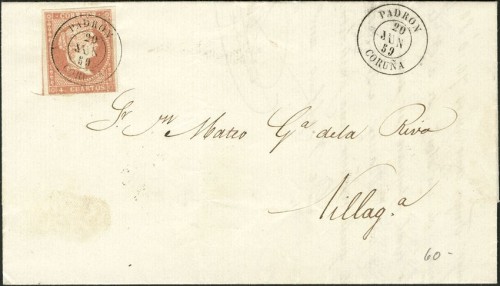 CORREOS
4 CUARTOS
PADRON
20
JUN
59
CORUÑA
PADRON
20
JUN
59
CORUÑA
Sr. Dn Mateo Ga. de la Riva
Villaga.
60-